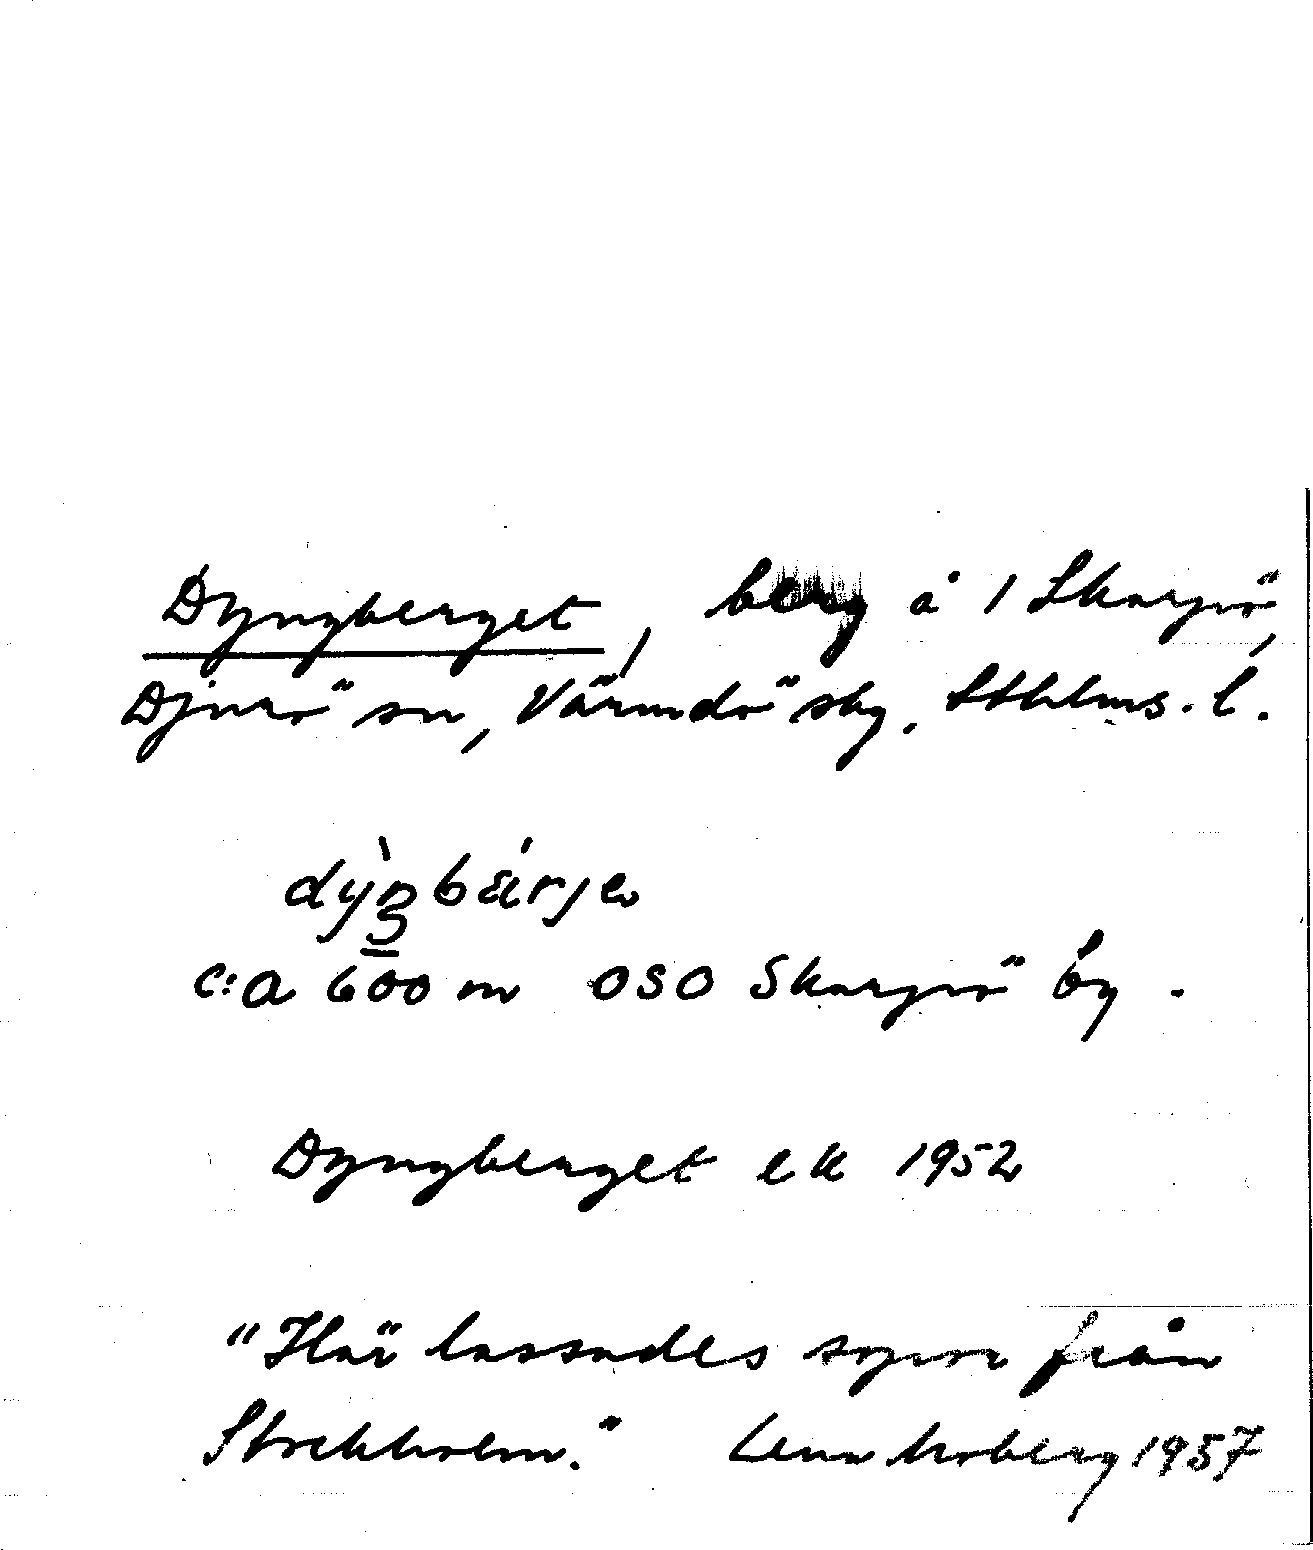 Dyngberget, berg å 1 Skarpö,
Djurö sn, Värmdö skg. Sthlms. l.
dỳŋbárje
c:a 600 m OSO Skarpö by.
Dyngberget ek 1952
"Här lassades sopor från
Stockholm." Lena Moberg 1957